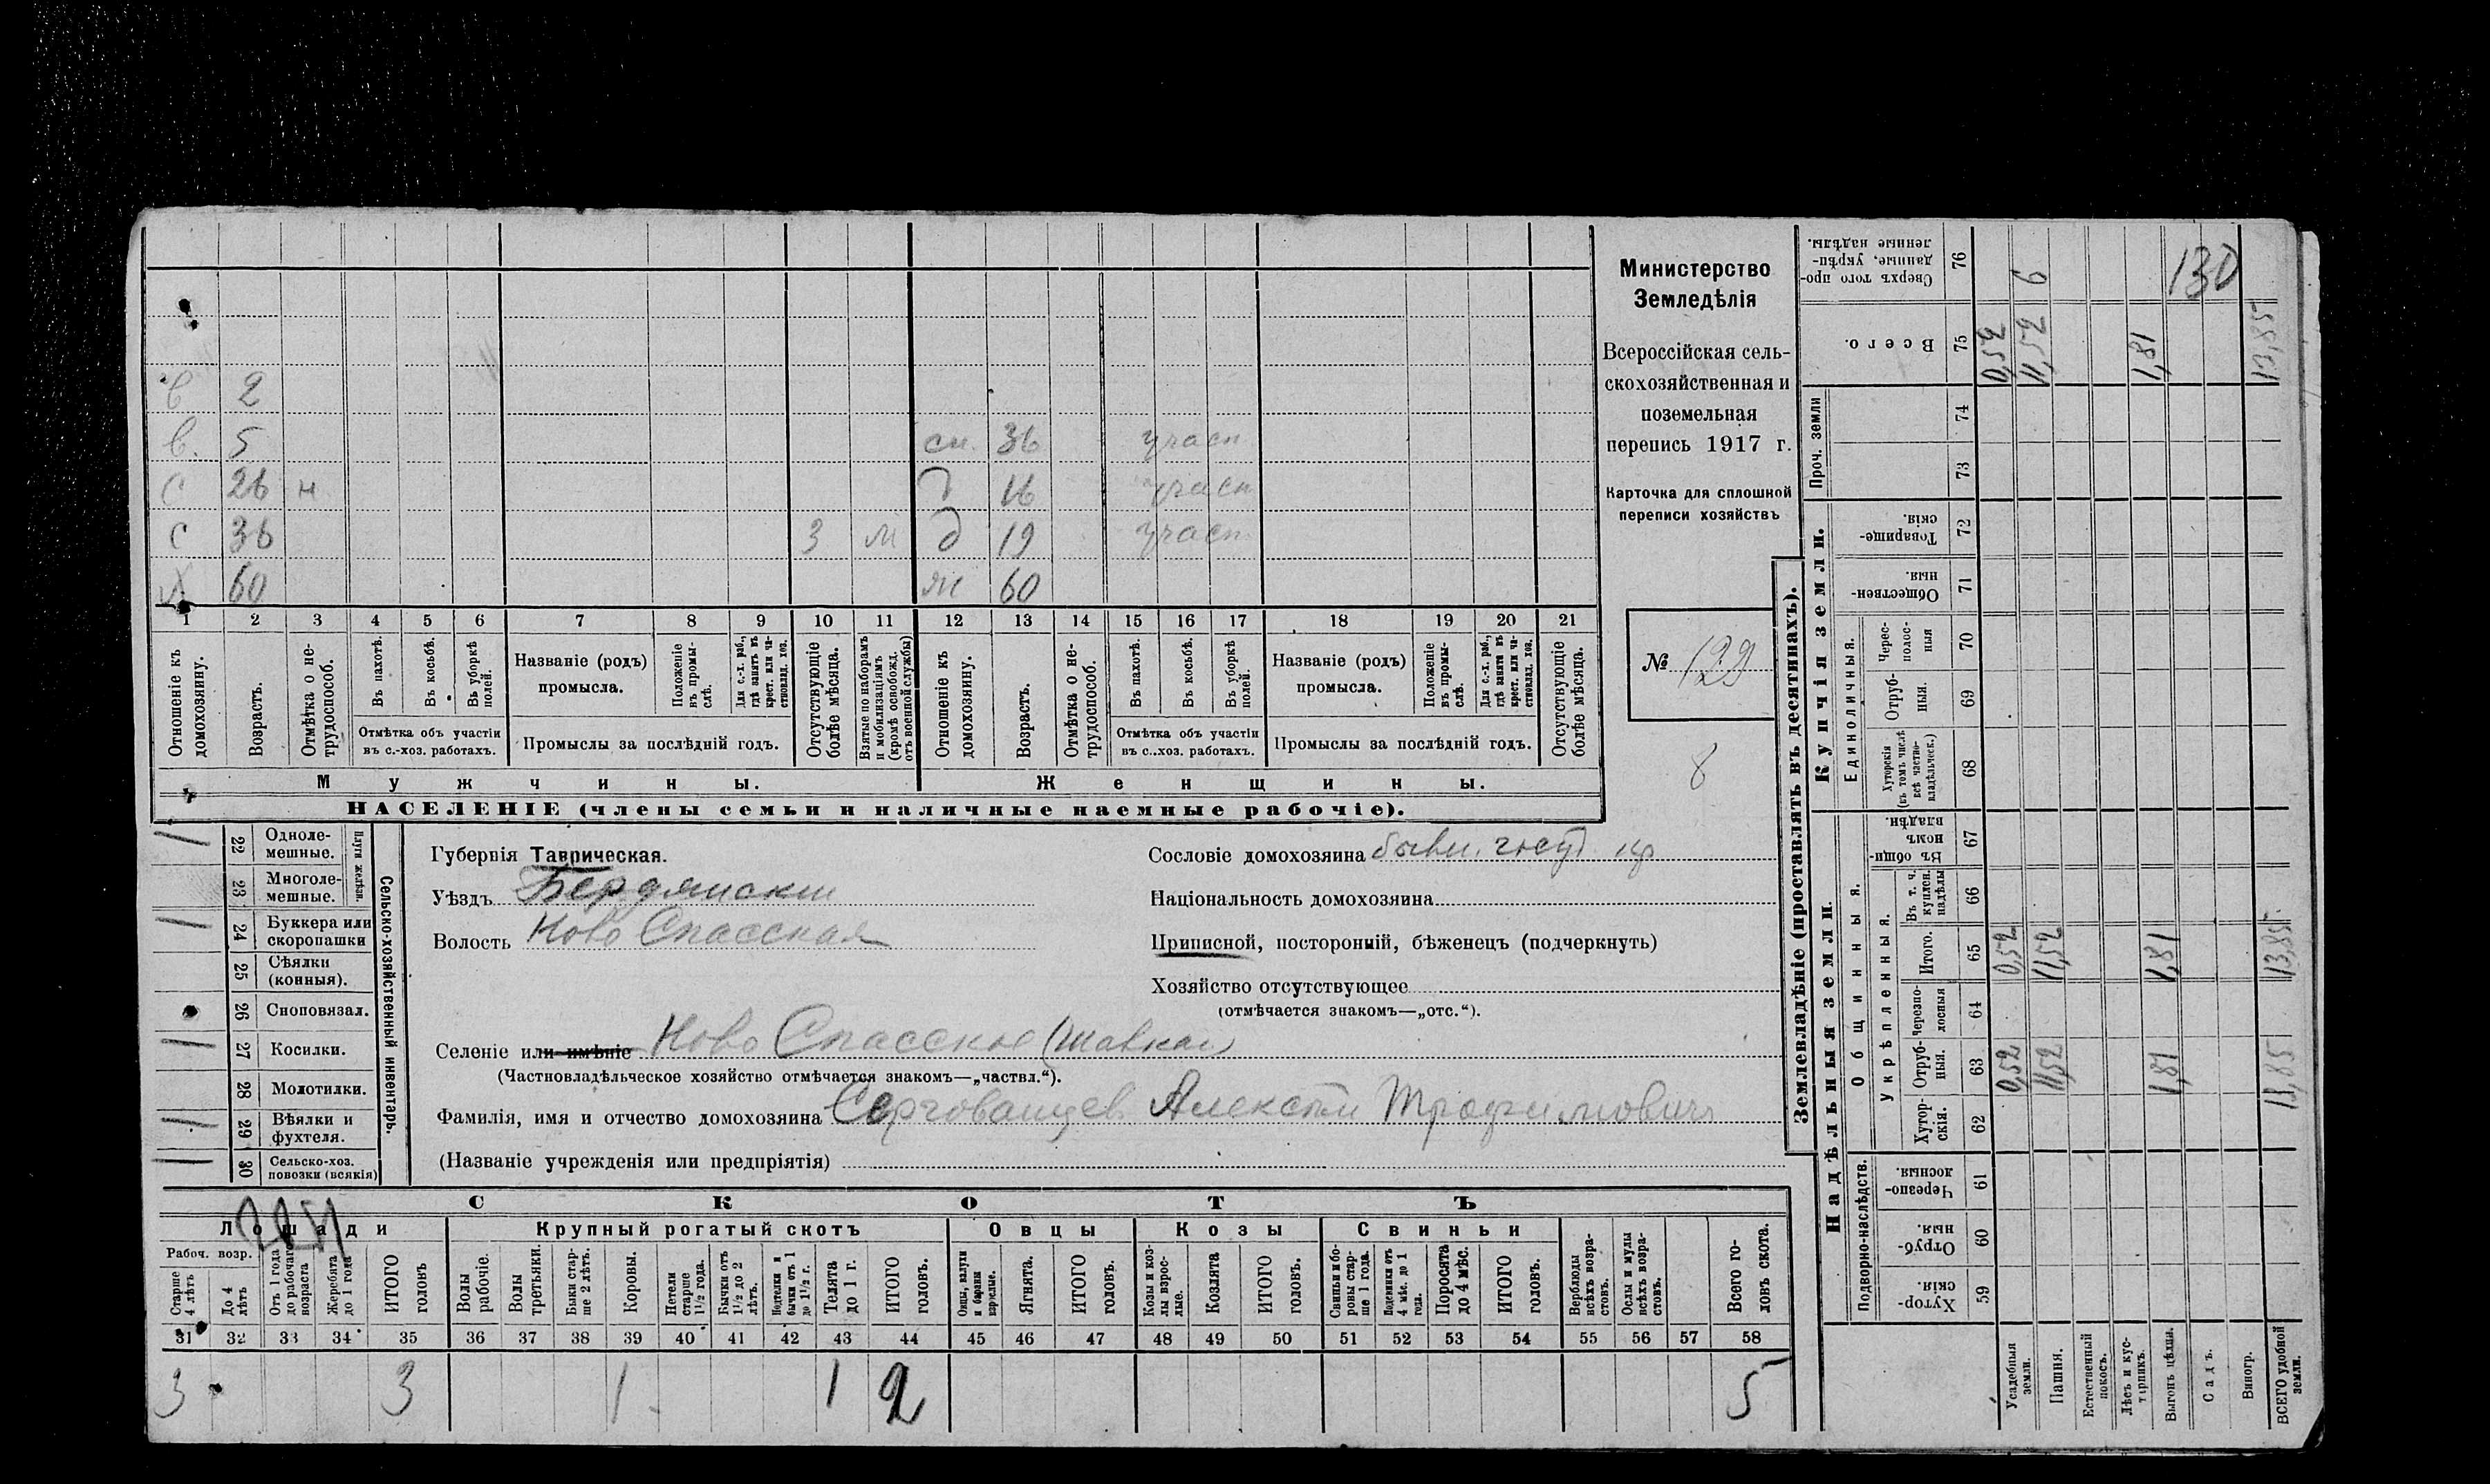 в 2
в. 5
сн. 36 участ
С 26 н
д 16 участ
С 36 3 м
д 19 участ
х 60
ж 60
1 2 3 4 5 6 7 8 9 10 11 12 13 14 15 16 17 18 19 20 21
Отношеніе къ домохозяину.
Возрастъ.
Отмѣтка о не-
трудоспособ.
Въ пахотѣ.
Въ косьбѣ.
Въ уборкѣ полей.
Отмѣтка объ участіи
въ с.-хоз. работахъ.
Названіе (родъ)
промысла.
Положеніе въ промы-
слѣ.
Для с.-х. раб., гдѣ занятъ въ крест. или ча-
стновлад. хоз.
Промыслы за послѣдній годъ.
Отсутствующіе болѣе мѣсяца.
Взятые по наборамъ и мобилизаціямъ (кромѣ освобожд. отъ военной службы)
Отношеніе къ домохозяину.
Возрастъ.
Отмѣтка о не-
трудоспособ.
Въ пахотѣ.
Въ косьбѣ.
Въ уборкѣ полей.
Отмѣтка объ участіи
въ с..хоз. работахъ.
Названіе (родъ)
промысла.
Положеніе въ промы-
слѣ.
Для с.-х. раб., гдѣ занята въ крест. или ча-
стновлад. хоз.
Промыслы за послѣдній годъ.
Отсутствующіе болѣе мѣсяца.
Мужчины.
Женщины.
НАСЕЛЕНІЕ (члены семьи и наличные наемные рабочіе).
Министерство
Земледѣлія
Всероссійская сель-
скохозяйственная и
поземельная
перепись 1917 г.
Карточка для сплошной
переписи хозяйствъ
№ 129
8
22 Одноле-
мешные.
23 Многоле-
мешные.
Плуги желѣзн.
24 Буккера или
скоропашки
25 Сѣялки
(конныя).
26 Сноповязал.
27 Косилки.
28 Молотилки.
29 Вѣялки и
фухтеля.
30 Сельско-хоз.
повозки (всякія)
Сельско-хозяйственный инвентарь.
Губернія Таврическая.
Уѣздъ Бердянскій
Волость Ново Спасская
Селеніе или имѣніе Ново Спасское (Шавкай)
(Частновладѣльческое хозяйство отмѣчается знакомъ—„частвл.“).
Фамилія, имя и отчество домохозяина Алексѣй Трофимовичъ
(Названіе учрежденія или предпріятія)
Сословіе домохозяина бывш. госуд кр
Національность домохозяина
Приписной, посторонній, бѣженецъ (подчеркнуть)
Хозяйство отсутствующее
(отмѣчается знакомъ—„отс.“).
СКОТЪ
Лошади
Крупный рогатый скотъ
Овцы
Козы
Свиньи
Рабоч. возр.
Старше 4 лѣтъ
До 4 лѣтъ
Отъ 1 года до рабочаго возраста
Жеребята до 1 года
ИТОГО головъ
Волы рабочіе.
Волы третьяки.
Быки стар-
ше 2 лѣтъ.
Коровы.
Нетели старше 1½ года.
Бычки отъ 1½ до 2 лѣтъ.
Нетелки и бычки отъ 1 до 1½ г.
Телята до 1 г.
ИТОГО головъ.
Овцы, валухи и бараны взрослые.
Ягнята.
ИТОГО головъ.
Козы и коз-
лы взрос-
лые.
Козлята
ИТОГО головъ.
Свиньи и бо-
ровы стар-
ше 1 года.
Подсвинки отъ 4 мѣс. до 1 года.
Поросята до 4 мѣс.
ИТОГО головъ.
Верблюды всѣхъ возра-
стовъ.
Ослы и мулы всѣхъ возра-
стовъ.
Всего го-
ловъ скота.
31 32 33 34 35 36 37 38 39 40 41 42 43 44 45 46 47 48 49 50 51 52 53 54 55 56 57 58
3 3 1 1 2 5
Землевладѣніе (проставлять въ десятинахъ).
Купчія земли.
Надѣльныя земли.
Сверхъ того про-
данные, укрѣп-
ленные надѣлы. 76 6 130
Всего. 75 0,52 11,52 1,81 13,85
Проч. земли 74
73
Товарище-
скія. 72
Обществен-
ныя. 71
Единоличныя.
Черес-
полос-
ныя 70
Отруб-
ныя. 69
Хуторскія
(въ томъ числѣ
всѣ частно-
владѣльческ.) 68
Общинныя.
Въ общин-
номъ
владѣн. 67
Укрѣпленныя.
Въ т. ч.
куплен.
надѣлы 66
Итого. 65 0,52 11,52 1,81 13,85
Черезпо-
лосныя 64
Отруб-
ныя. 63 0,52 11,52 1,81 13,85
Хутор-
скія. 62
Подворно-наслѣдств.
Черезпо-
лосныя. 61
Отруб-
ныя. 60
Хутор-
скія. 59
Усадебныя земли.
Пашня.
Естественный покосъ.
Лѣсъ и кус-
тарникъ.
Выгонъ цѣлин.
Садъ.
Виногр.
ВСЕГО удобной земли.